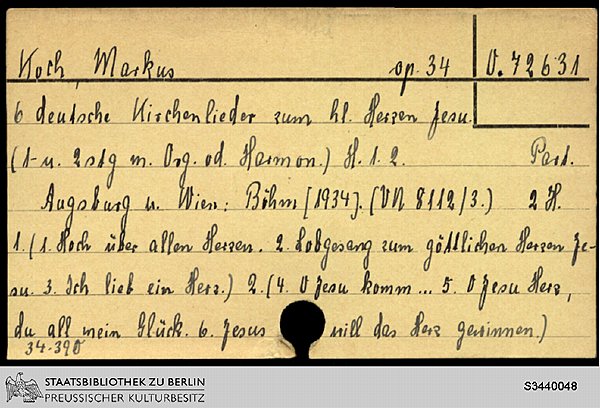 Koch, Markus op. 34 O. 72631
6 deutsche Kirchenlieder zum hl. Herzen Jesu.
(1- u. 2stg m. Org. od. Harmon.) H. 1. 2. Part.
Augsburg u. Wien: Böhm [1934]. (VN 8112/3.) 2 H.
1. (1. Hoch über allen Herzen. 2. Lobgesang zum göttlichen Herzen Je-
su. 3. Ich lieb ein Herz.) 2. (4. O Jesu komm ... 5. O Jesu Herz,
du all mein Glück. 6. Jesus will das Herz gewinnen.)
34-390
STAATSBIBLIOTHEK ZU BERLIN
PREUSSISCHER KULTURBESITZ
S3440048